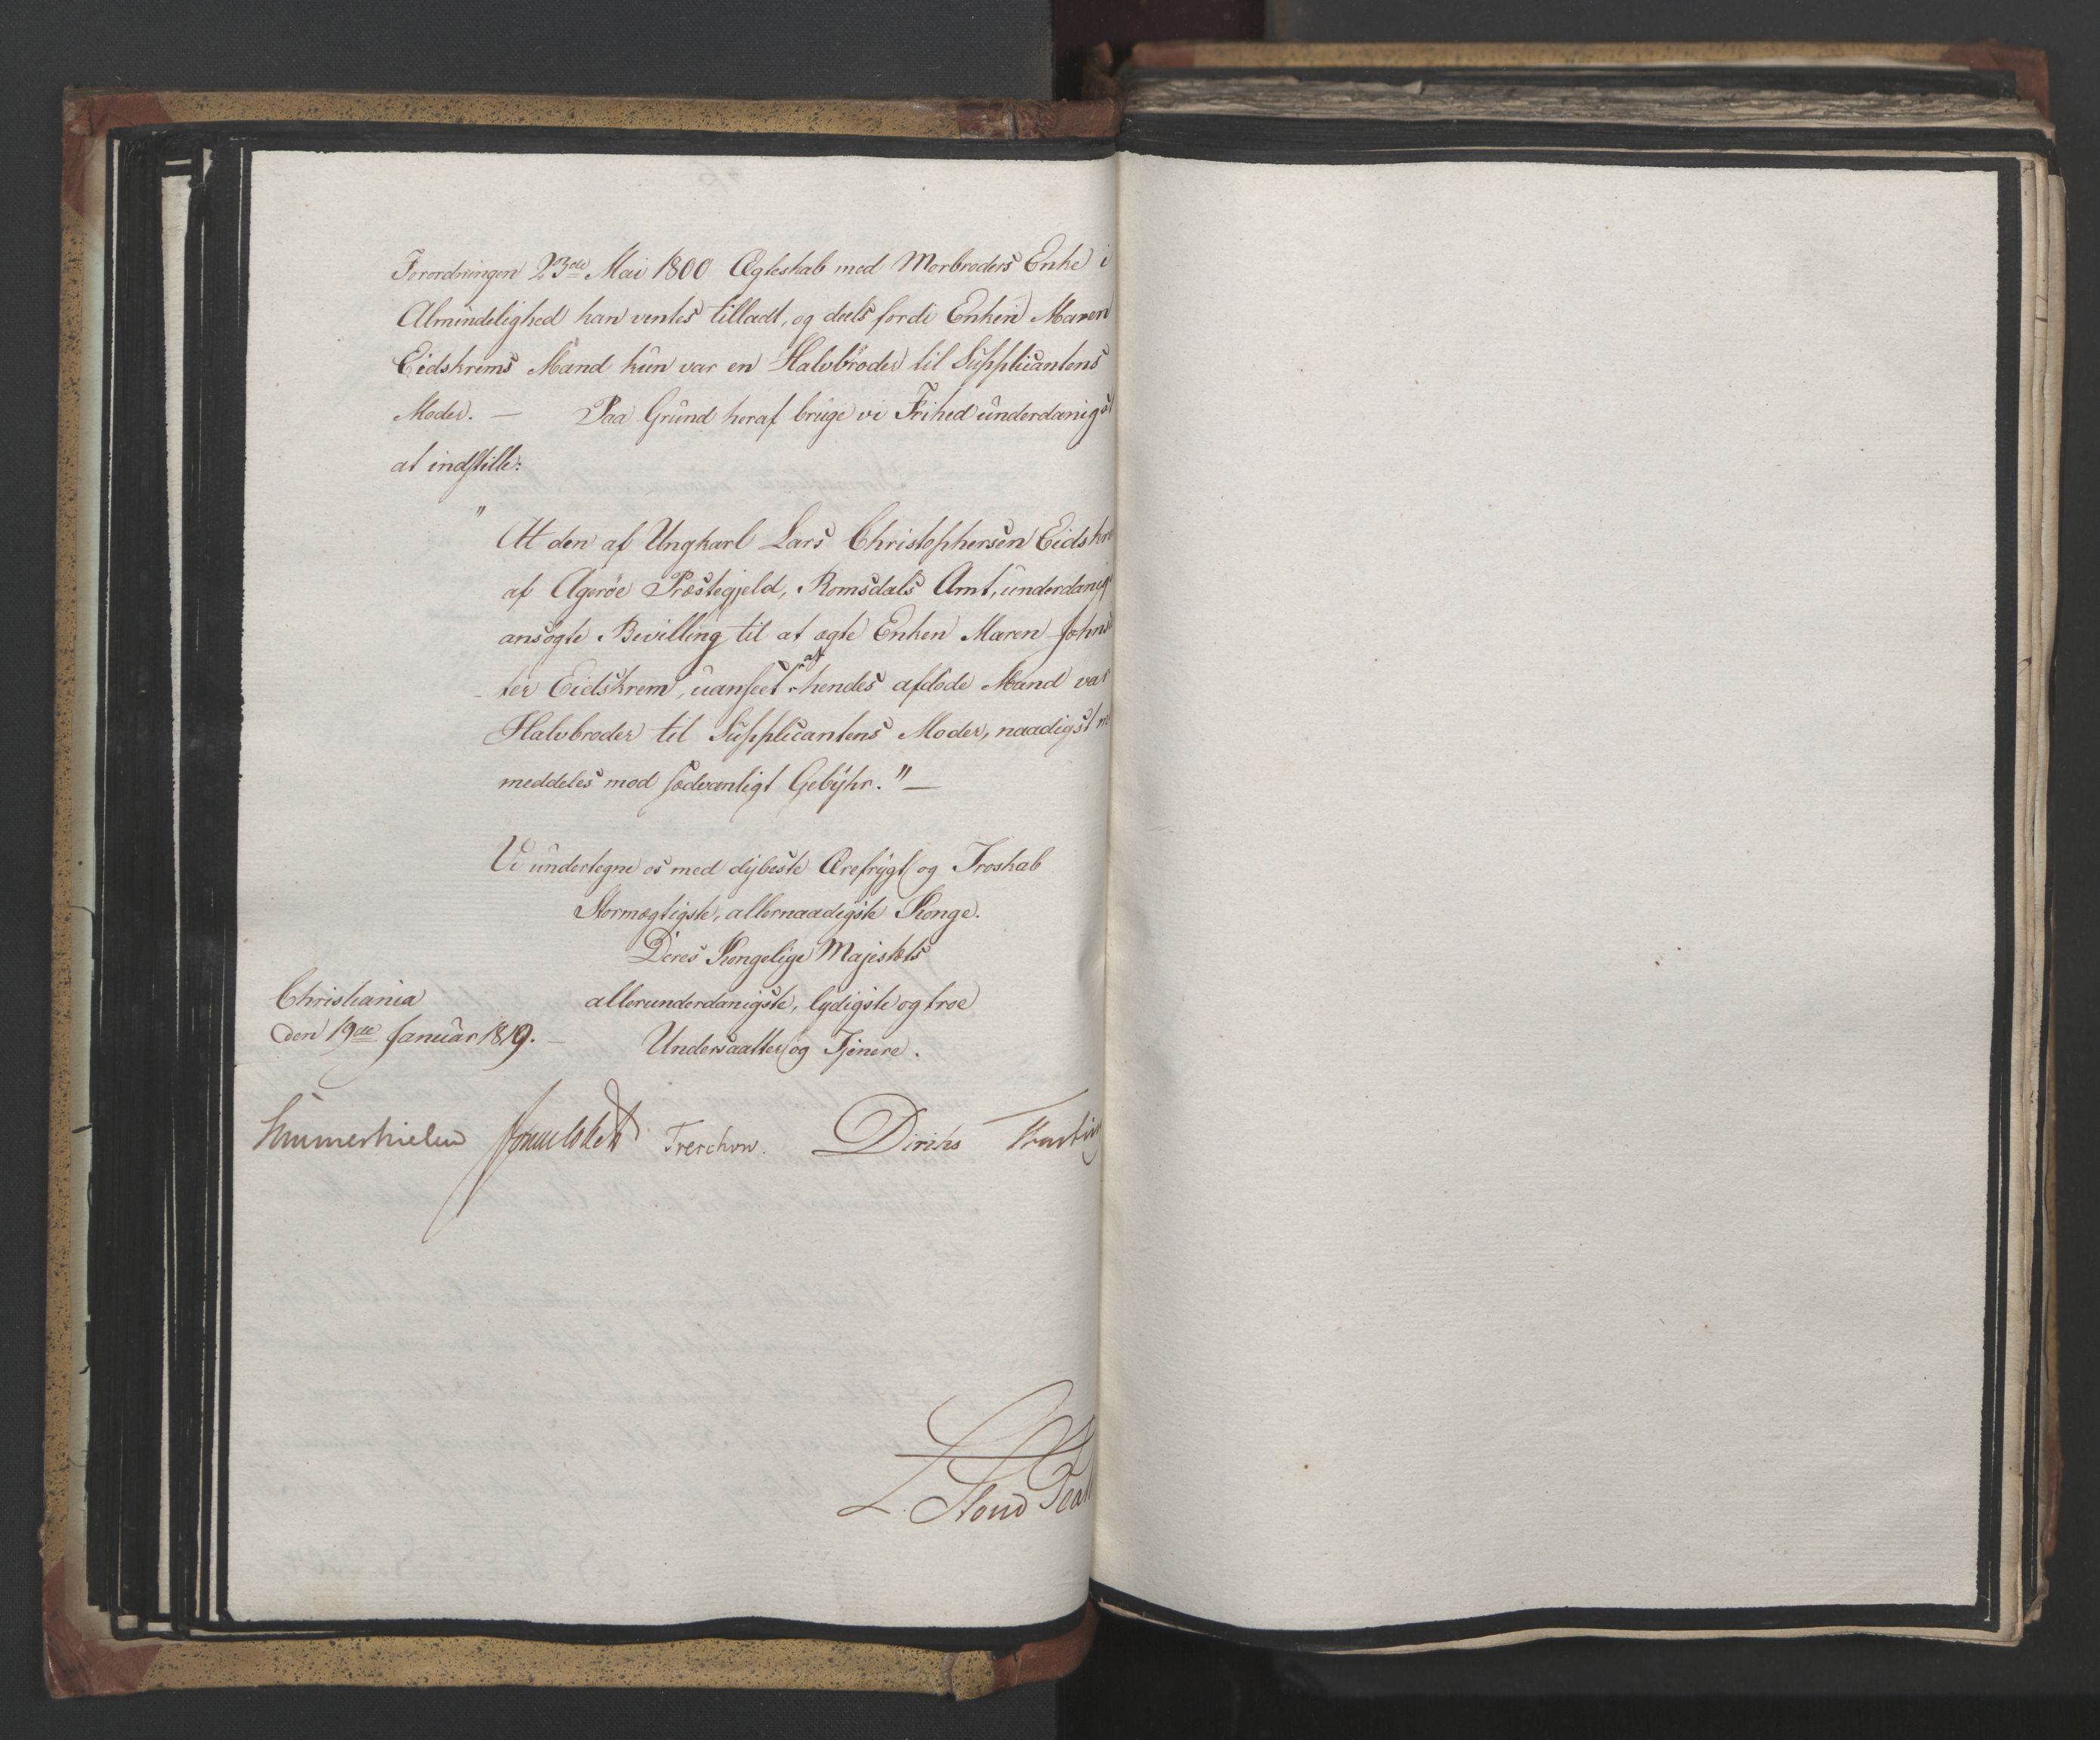 Forordningen 23de Mai 1800 Ægteskab med Morbroders Enke i
Almindelighed kan ventes tilladt, og deels fordi Enken Maren
Eidskrems Mand kun var en Halvbroder til Supplicantens
Moder. — Paa Grund heraf bruge vi Frihed underdanigst
at indstille:
" At den af Ungkarl Lars Christophersen Eidskre
af Agerøe Præstegjeld, Romsdals Amt, underdanig
ansøgte Bevilling til at ægte Enken Maren Johnsd
ter Eidskrem, uanseet at hendes afdøde Mand var
Halvbroder til Supplicantens Moder, naadigst m
meddeles mod sædvanligt Gebyhr." —
Vi undertegne os med dybeste Ærefrygt og Troskab
Stormægtigste, allernaadigste Konge.
Deres Kongelige Majestæts
Christiania allerunderdanigste, lydigste og troe
den 19de Januar 1819. — Undersaatter og Tjenere.
Sommerhielm Treschow. Diriks
L. Stoud